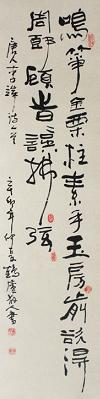 鳴箏金粟柱素手玉房前欲得
周郎顧旹誤拂弦
唐人李端詩一首
辛卯年仲夏鶴廬散人書